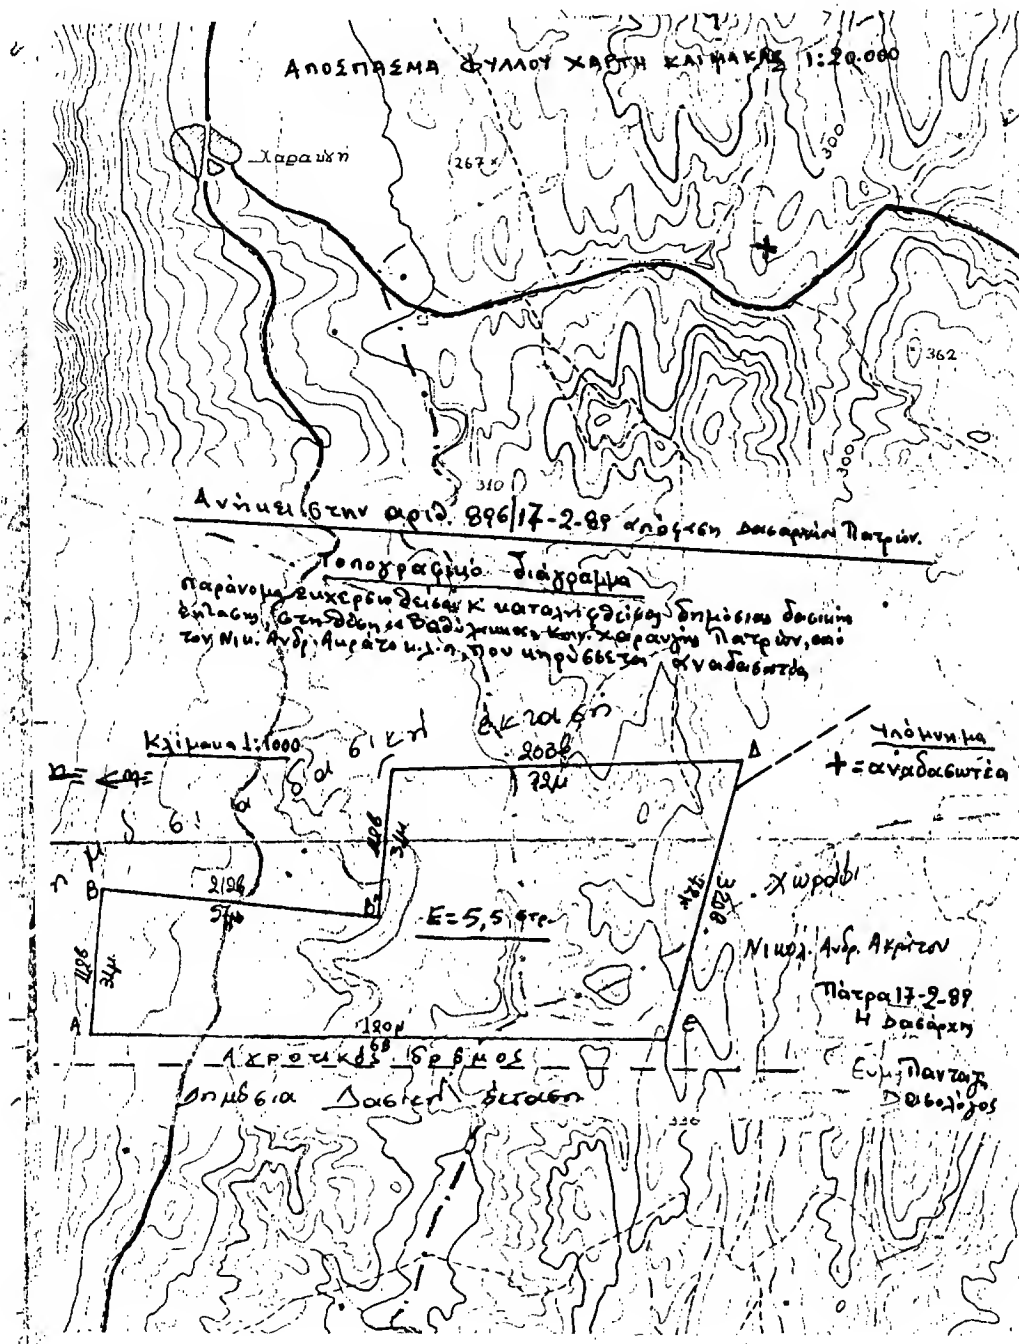 ΑΠΟΣΠΑΣΜΑ ΦΥΛΛΟΥ ΧΑΡΤΗ ΚΛΙΜΑΚΑΣ 1:20.000
Χαραυγή
267
300
362
300
310
Ανήκει στην αριθ. 896/17-2-89 απόφαση Δασαρχείου Πατρών.
Τοπογραφικό διάγραμμα
παράνομα εκχερσωθείσας κ καταληφθείσας δημόσιας δασικής
έκτασης, στη θέση Κοιν. Χαραυγής Πατρών, από
τον Νικ. Ανδρ. Ακράτο κ.λ.π, που κηρύσσεται αναδασωτέα
Κλίμακα 1:1000
δασική έκταση
200β
72μ
Δ
Υπόμνημα
+ = αναδασωτέα
Β
212β
57μ
31μ
31μ
Ε=5,5 στρ.
320β
χωράφι
Νικολ. Ανδρ. Ακράτου
Πάτρα 17-2-89
Η Δασάρχης
Ευμ.
Δασολόγος
Α
120μ
Ε
Αγροτικός δρόμος
Δημόσια Δασική έκταση